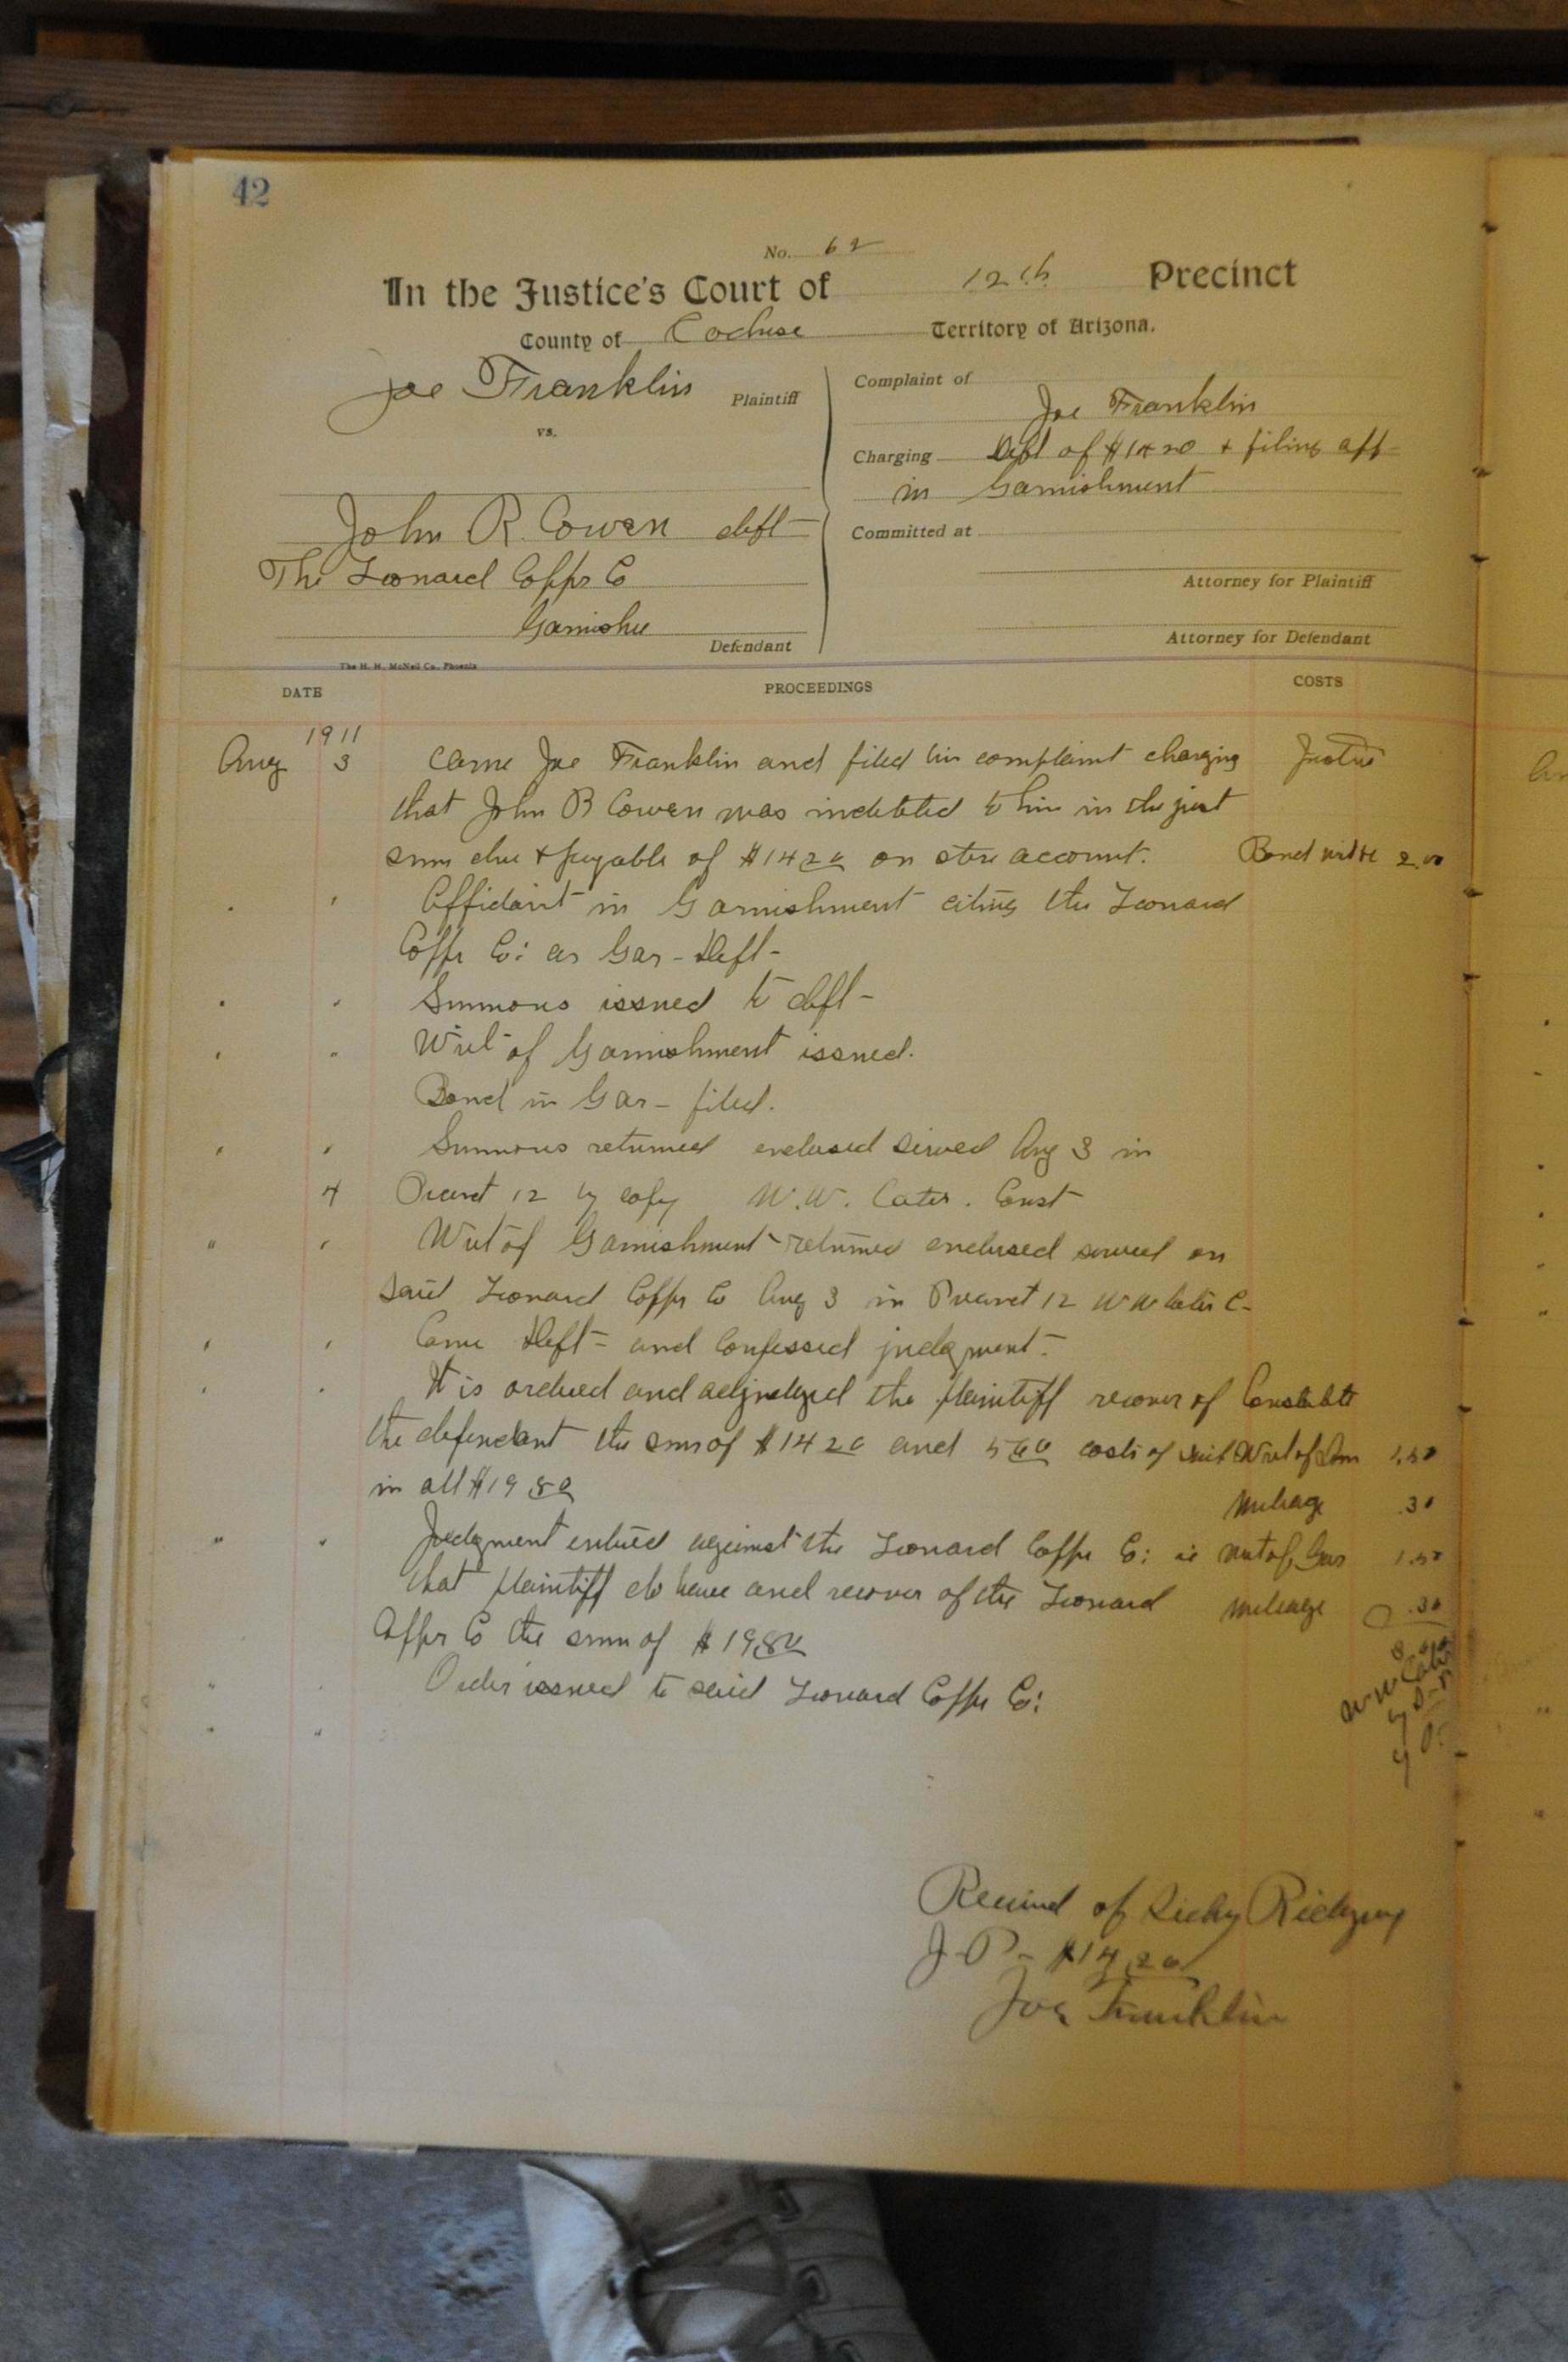 42
No. 62
In the Justice's Court of 12th Precinct
County of Cochise Territory of Arizona.
Joe Franklin Plaintiff
vs.
John R. Cowen deft
The Leonard Copper Co
Garnishee
Defendant
The H. H. McNeil Co., Phoenix
Complaint of
Joe Franklin
Charging Debt of $14 20 + filing aff
in Garnishment
Committed at
Attorney for Plaintiff
Attorney for Defendant
DATE PROCEEDINGS COSTS
1911
Aug 3 Came Joe Franklin and filed his complaint charging Justice
that John R Cowen was indebted to him in the just
sum due + payable of $14 20 on store account. Bond 2.00
" " Affidavit in Garnishment citing the Leonard
Copper Co: as Gar - Deft -
" " Summons issued to deft -
" " Writ of Garnishment issued.
Bond in Gar - filed.
" " Summons returned endorsed served Aug 3 in
4 Precinct 12 by copy W. W. Cater. Const
" " Writ of Garnishment returned endorsed served on
said Leonard Copper Co Aug 3 in Precinct 12 W W Cater C -
" " Came Deft - and confessed judgment.
" " It is ordered and adjudged the plaintiff recover of Constable
the defendant the sum of $14 20 and 5 60 costs of suit Writ of Sum 1.50
in all $19 80
mileage .30
" " Judgment entered against the Leonard Copper Co: ie writ of Gar 1.50
that plaintiff do have and recover of the Leonard mileage .30
Copper Co the sum of $19 80
W W Cater
" " Order issued to said Leonard Copper Co:
" "
Received of
J. P - $14.20
Joe Franklin